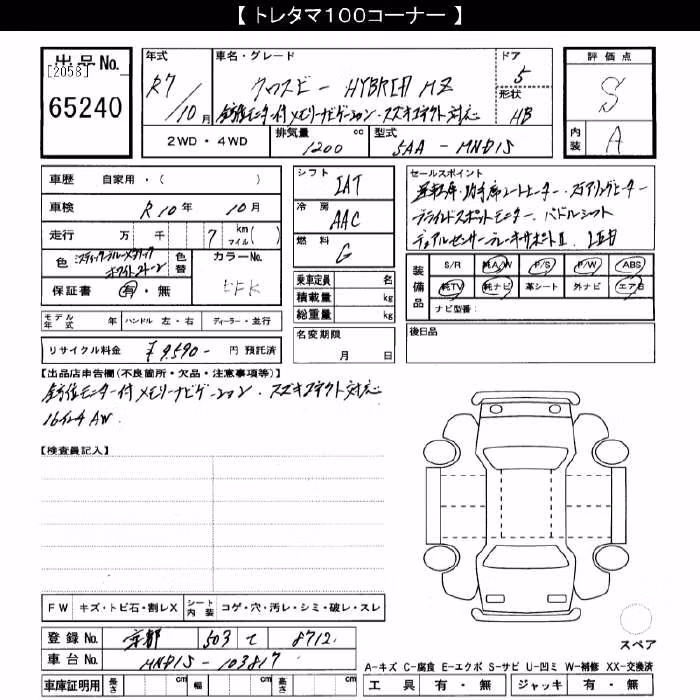 【 トレタマ100コーナー 】
出品No. [2058] 65240
年式 R7/10月
車名・グレード クロスビー HYBRID MZ
全方位モニター付メモリーナビゲーション・スズキコネクト対応
ドア 5
形状 HB
評価点 S
内装 A
2WD・4WD 排気量 1200 cc 型式 5AA - MND1S
車歴 自家用・( )
車検 R10年 10月
走行 万 千 7 km マイル( )
色 2トーン 色替 カラーNo.
保証書 有・無
モデル年式 年 ハンドル 左・右 ディーラー・並行
リサイクル料金 ¥9,590- 円 預託済
シフト IAT
冷房 AAC
燃料 G
乗車定員 名
積載量 kg
総重量 kg
名変期限 月 日
セールスポイント
運転席・助手席シートヒーター・ステアリングヒーター
ブラインドスポットモニター・パドルシフト
デュアルセンサーブレーキサポートⅡ LED
装備品 S/R 純A/W P/S P/W ABS
純TV 純ナビ 革シート 外ナビ エアB
ナビ型番:
後日品
【出品店申告欄(不良箇所・欠品・注意事項等)】
全方位モニター付メモリーナビゲーション・スズキコネクト対応
16インチAW
【検査員記入】
FW キズ・トビ石・割レX シート内装 コゲ・穴・汚レ・シミ・破レ・スレ
登録No. 京都 503 て 8712
車台No. MND1S-103817
車庫証明用 長さ cm 幅 cm 高さ cm
スペア
A-キズ C-腐食 E-エクボ S-サビ U-凹ミ W-補修 XX-交換済
工具 有・無 ジャッキ 有・無